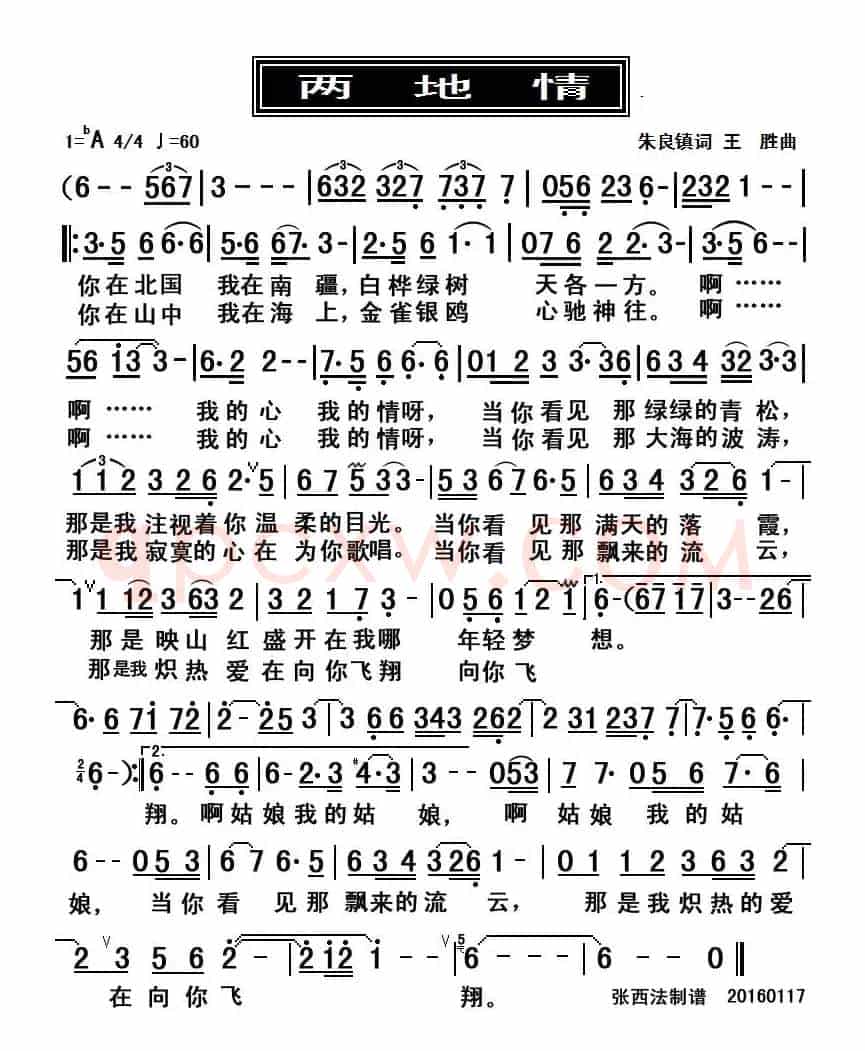 两 地 情
1=ᵇA 4/4 ♩=60 朱良镇词 王 胜曲
(6 - - 567 | 3 - - - | 632 327 737 7 | 056 23 6 - | 232 1 - -
‖: 3·5 6 6·6 | 5·6 67· 3 - | 2·5 6 1·1 | 076 2 2·3 - | 3·5 6 - -
你在北国 我在南 疆，白桦绿树 天各一方。 啊……
你在山中 我在海 上，金雀银鸥 心驰神往。 啊……
56 13 3 - | 6·2 2 - - | 7·5 6 6·6 | 012 3 3·36 | 634 32 3·3 |
啊…… 我的心 我的情呀， 当你看见 那绿绿的青松，
啊…… 我的心 我的情呀， 当你看见 那大海的波涛，
112 326 2·5 | 67 533 - | 53 67 6·5 | 634 326 1 - |
那是我注视着你温 柔的目光。 当你看 见那 满天的落 霞，
那是我寂寞的心在 为你歌唱。 当你看 见那 飘来的流 云，
1 1 12 3 63 2 | 3 2 1 7 3 - | 0 5 6 1 2 1 | 1. 6 - (67 17 | 3 - - 26 |
那是映山 红盛开在我哪 年轻梦 想。
那是我炽热 爱在向你飞翔 向你飞
6·6 71 72 | 2 - 25 3 | 3 66 343 262 | 2 31 237 7 | 7·5 6 6·
2/4 6 - ) :‖ 2. 6 - - 6 6 | 6 - 2·3 #4·3 | 3 - - 053 | 7 7·056 7·6 |
翔。啊姑娘我的姑 娘， 啊 姑娘 我的姑
6 - - 053 | 67 6·5 | 634 326 1 - | 01 12 363 2 |
娘， 当你看 见那飘来的流 云， 那是我炽热的爱
2 3 5 6 2 - | 212 1 - | 6 - - - | 6 - - 0 ‖
在向你飞 翔。 张西法制谱 20160117
qpcxw.com